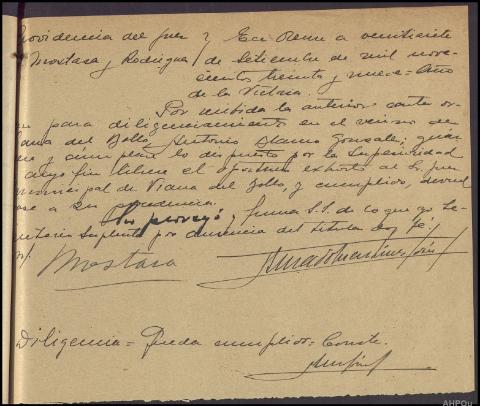 Providencia del Juez } En Orense a veintisiete
Mostaza y Rodriguez / de Setiembre de mil nove-
cientos treinta y nueve = Año
de la Victoria.
Por recibida la anterior carta or-
den para diligenciamiento en el vecino de
Viana del Bollo, Antonio Blanco Gonzalez; guár-
dese y cumplase lo dispuesto por la Superioridad
a cuyo fin librese el oportuno exhorto al Sr Juez
municipal de Viana del Bollo, y cumplido, devuel
vase a su procedencia.
Lo proveyó y firma S.S. de lo que yo Se-
cretario Suplente por ausencia del titular doy fé.
Mostaza
Diligencia = Queda cumplido = Conste.
AHPOu